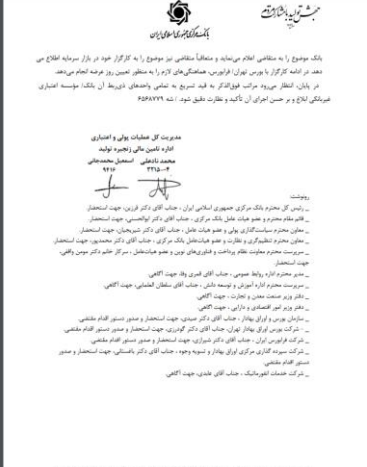 جهش تولید با مشارکت مردم
بانک مرکزی جمهوری اسلامی ایران
بانک موضوع را به متقاضی اعلام می‌نماید و متعاقباً متقاضی نیز موضوع را به کارگزار خود در بازار سرمایه اطلاع می
دهد. در ادامه کارگزار با بورس تهران/ فرابورس، هماهنگی‌های لازم را به منظور تعیین روز عرضه انجام می‌دهد.
در پایان، انتظار می‌رود مراتب فوق‌الذکر به قید تسریع به تمامی واحدهای ذیربط آن بانک/ مؤسسه اعتباری
غیربانکی ابلاغ و بر حسن اجرای آن تأکید و نظارت دقیق شود. / شه ۶۵۶۸۷۷۹
مدیریت کل عملیات پولی و اعتباری
اداره تامین مالی زنجیره تولید
محمد نادعلی اسمعیل محمدجانی
۳۳۱۵-۰۴ ۹۴۱۶
رونوشت:
_ رئیس کل محترم بانک مرکزی جمهوری اسلامی ایران ، جناب آقای دکتر فرزین، جهت استحضار.
_ قائم مقام محترم و عضو هیات عامل بانک مرکزی ، جناب آقای دکتر ابوالحسنی، جهت استحضار.
_ معاون محترم سیاستگذاری پولی و عضو هیات عامل ، جناب آقای دکتر شیریجیان، جهت استحضار.
_ معاون محترم تنظیم‌گری و نظارت و عضو هیات‌عامل بانک مرکزی ، جناب آقای دکتر محمدپور، جهت استحضار.
_ سرپرست محترم معاونت نظام پرداخت و فناوری‌های نوین و عضو هیات‌عامل ، سرکار خانم دکتر مومن واقفی،
جهت استحضار.
_ مدیر محترم اداره روابط عمومی ، جناب آقای قمری وفا، جهت آگاهی.
_ سرپرست محترم اداره آموزش و توسعه دانش ، جناب آقای سلطان العلمایی، جهت آگاهی.
_ دفتر وزیر صنعت معدن و تجارت ، جهت آگاهی.
_ دفتر وزیر امور اقتصادی و دارایی ، جهت آگاهی.
_ سازمان بورس و اوراق بهادار ، جناب آقای دکتر صیدی، جهت استحضار و صدور دستور اقدام مقتضی.
_ شرکت بورس اوراق بهادار تهران، جناب آقای دکتر گودرزی، جهت استحضار و صدور دستور اقدام مقتضی.
_ شرکت فرابورس ایران ، جناب آقای دکتر شیرازی، جهت استحضار و صدور دستور اقدام مقتضی.
_ شرکت سپرده گذاری مرکزی اوراق بهادار و تسویه وجوه ، جناب آقای دکتر باغستانی، جهت استحضار و صدور
دستور اقدام مقتضی.
_ شرکت خدمات انفورماتیک ، جناب آقای عابدی، جهت آگاهی.